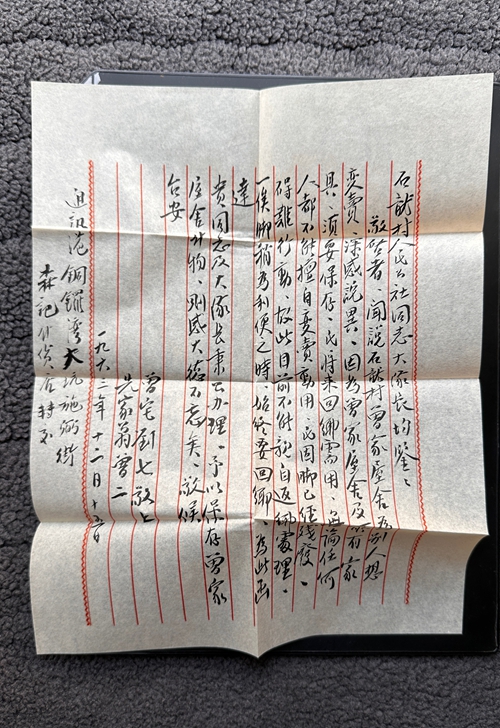 石龍村人民公社同志大家長均鑒：
敬啓者、聞說石龍村曾家屋舍為別人想
変賣、深感詫異、因為曾家屋舍及所有家
具、須要保存、氏將來回鄉需用、無論任何
人都不能擅自変賣動用、氏因脚已殘廢、
碍難行動、故此目前不能親自返鄉處理、
一俟脚稍為利便之時、始終要回鄉、為此函
達
貴同志及大隊長秉公办理、予以保存曾家
屋舍什物、則感大德不忘矣、敬候
台安
曾宅劉七敬上
先家翁曾二
一九六三年十二月十五日
通訊港銅鑼灣大坑施弼街
森記什貨店轉交